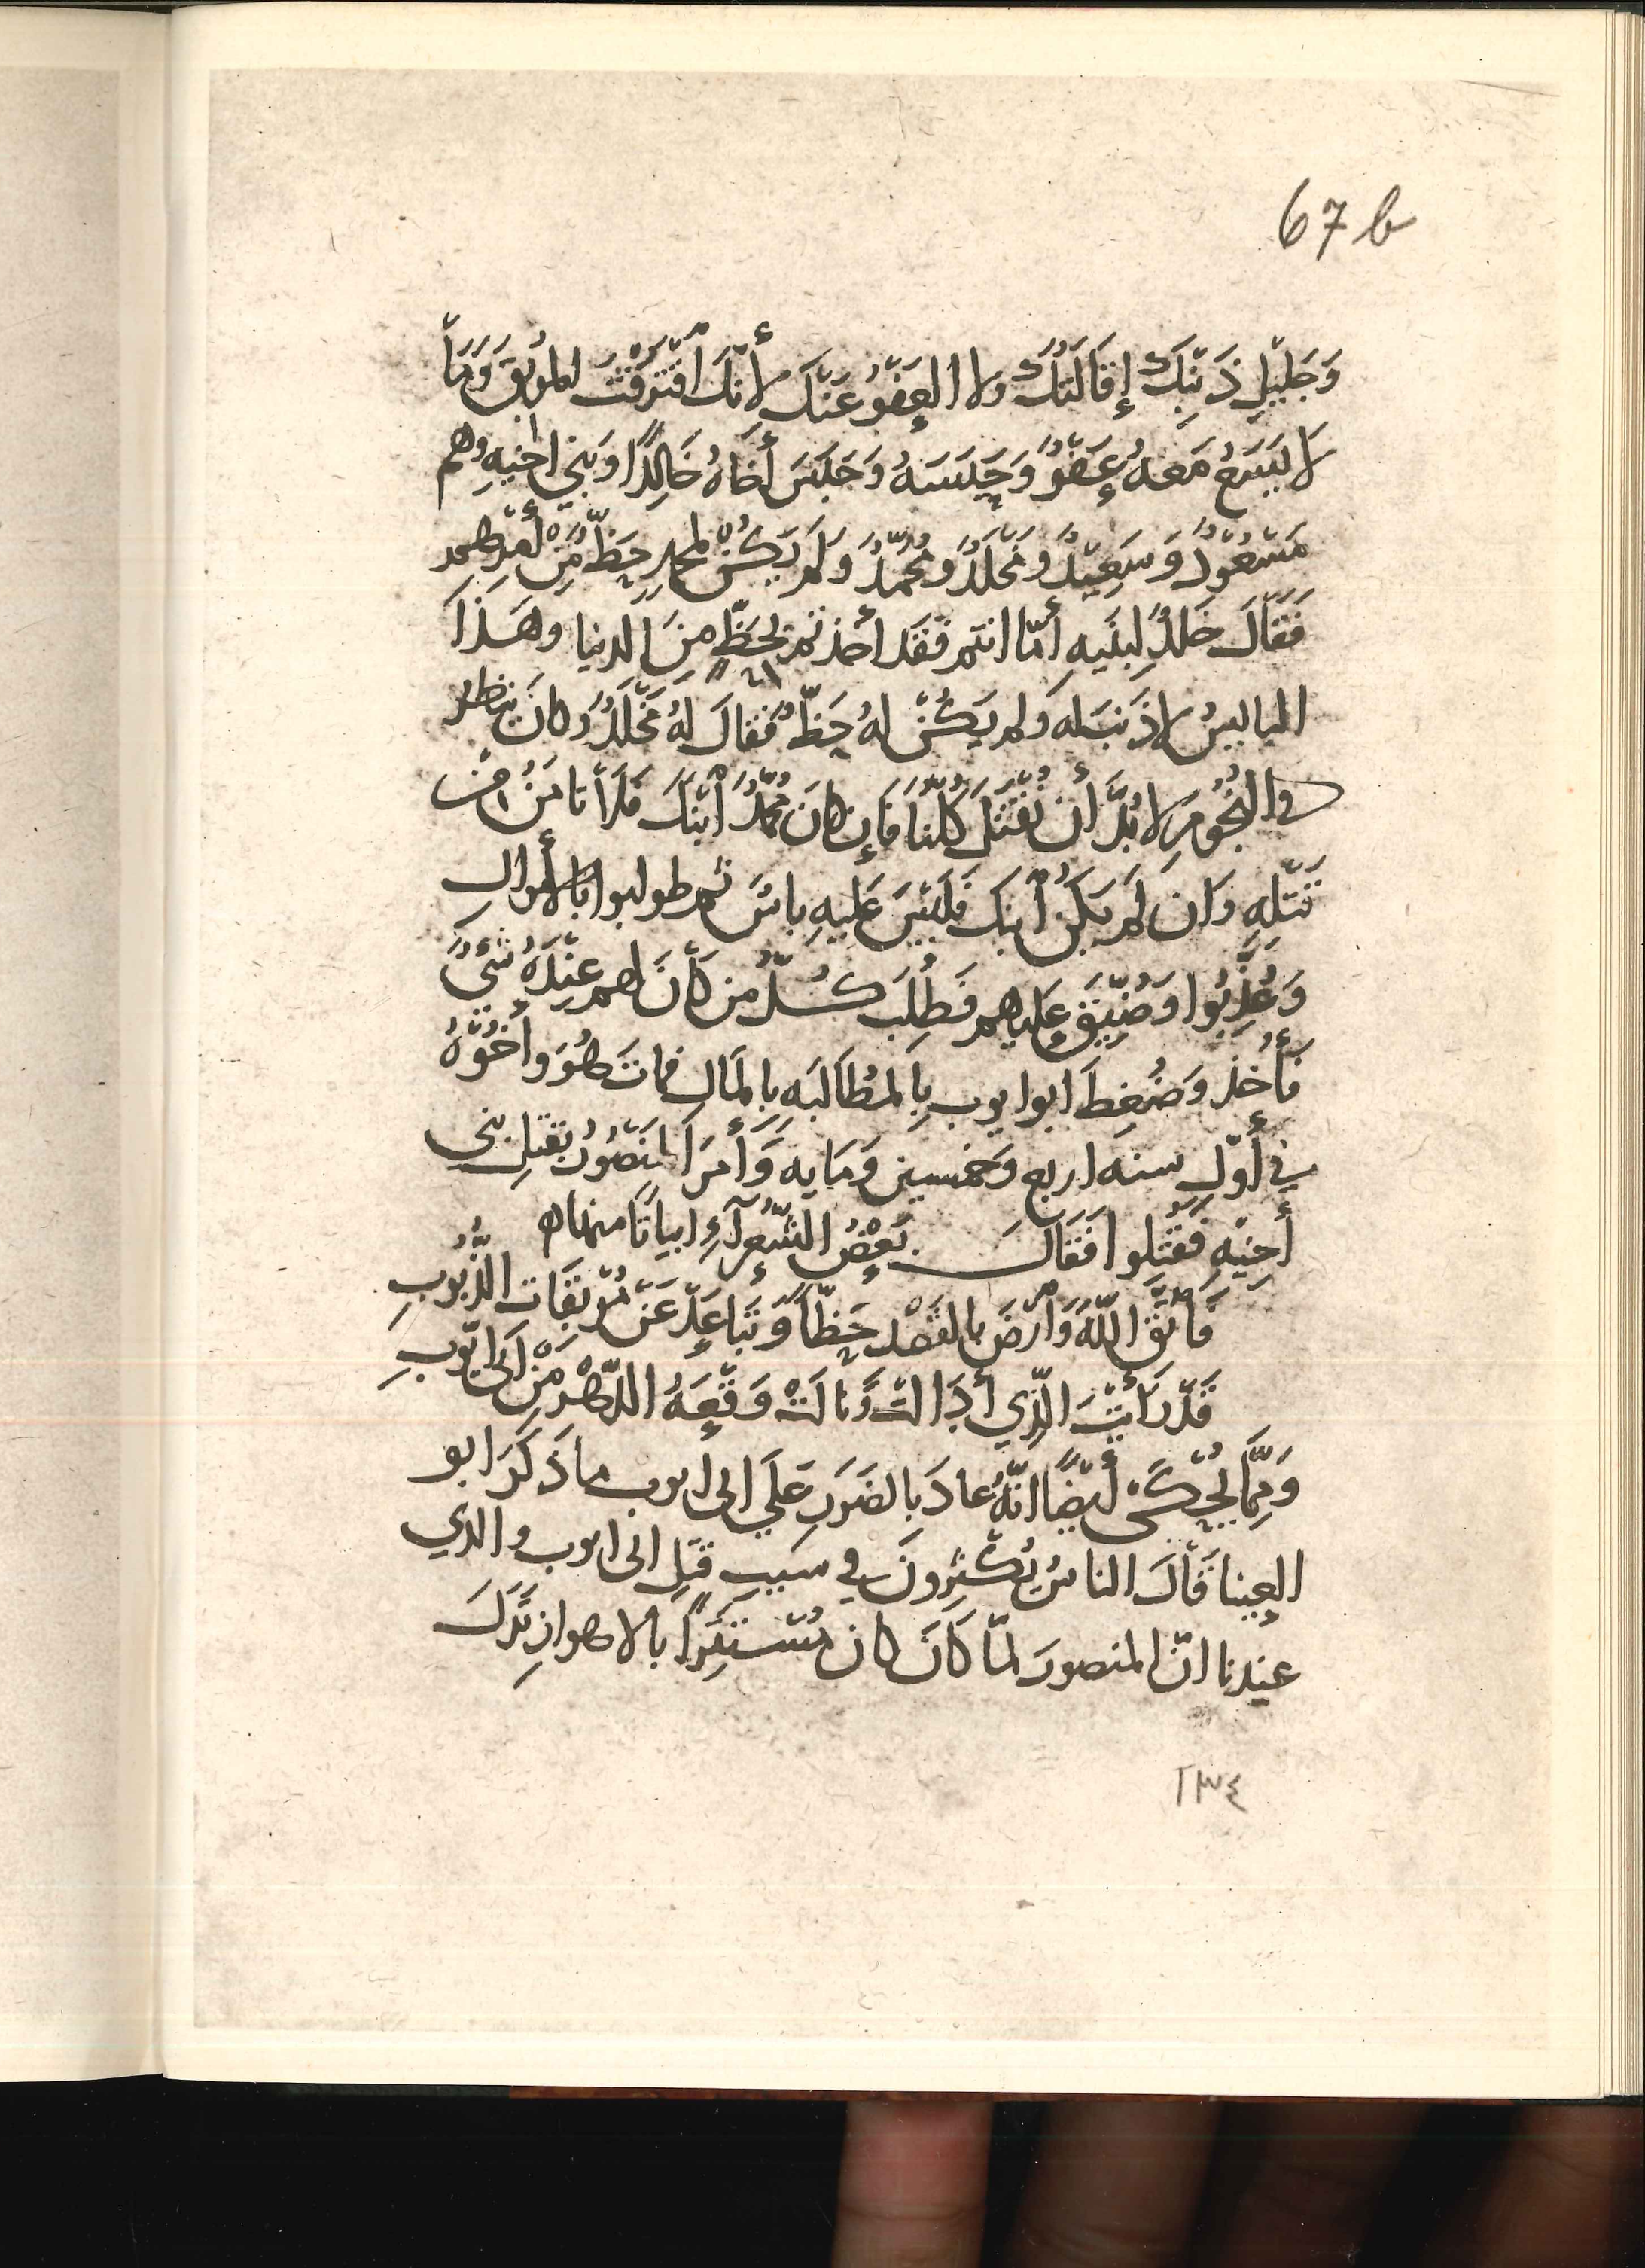 67 b
وَجَلِيْلِ ذَنْبِكَ إِقَالَتُكَ ولا العَفْوُ عَنْكَ لاِنَّكَ اقْتَرَفْتَ المُوْبِقَ وَمَا
لَا يَسَعُ مَعهُ عَفْوٌ وَحَبَسَهُ وَحَبَسَ أَخَاهُ خَالِدًا وَبَنِي اخيهِ وهم
مَسْعُوْدٌ وَسَعِيْدٌ وَمَخْلَدٌ وَمُحَمَّدٌ وَلَمْ يَكُنْ لمحمدٍ حَظٌّ مِنْ أَمْرِهِمْ
فَقَالَ خَالدٌ لِبَنيهِ أَمّا انتم فَقَد أَخذتم بِحَظٍّ مِنَ الدنيا وهَذَا
البايسُ لا ذَنبَ له وَلم يَكُنْ لهُ حَظٌّ فَقالَ لهُ مَخْلَدٌ وَكانَ ينظر
في النُّجُومِ لا بُدَّ أن نُقْتَلَ كُلُّنَا فَإن كانَ مُحَمَّدٌ ابْنَكَ فَلَا تامَنْ مِن
قَتْلِهِ وَان لَمْ يَكُنْ ابنَكَ فَلَيْسَ عَلَيهِ باسٌ ثم طولبوا بالأَموالِ
وَعُذِّبُوا وَضُيِّقَ عَليهم فَطُلِبَ كُلُّ من كَانَ لهم عِنْدَهُ شَيْءٌ
فَأُخذ وَضُغِطَ ابو ايوب بِالمُطَالَبَهِ بِالمَال فماتَ هُوَ وأَخُوْهُ
في أَوّلِ سنه اربعٍ وَخمسين وَمَايه وَأَمَرَ المَنْصُوْرُ بِقَتلِ بَنِي
أَخِيْهِ فَقُتِلوا فَقَالَ بَعْضُ الشُّعَرآءِ ابياتًا منها ه
فَاتَّقِ اللّهَ وَارْضَ بالقَصْدِ حَظًّا وَتَبَاعَدْ عَنْ مُوْبِقَات الذُّنُوبِ
قَدْ رَأَيْتَ الّذِي أَدَالَتْ وَنالَتْ وَقْعَةُ الدّهْرِ مِنْ ابي ايّوبِ
وَمِمَّا يُحْكَى أَيْضًا انَّهُ عادَ بِالضرَرِ عَلَي ابي أيوب ما ذَكَرَ ابو
العينا قَالَ الناسُ يُكْثِرونَ في سَبَبِ قَتلِ ابي ايوب والذي
عِندنا انّ المنصورَ لمّا كَانَ كان مُسْتَتِرًا بالاهوازِ نَزَلَ
١٣٤